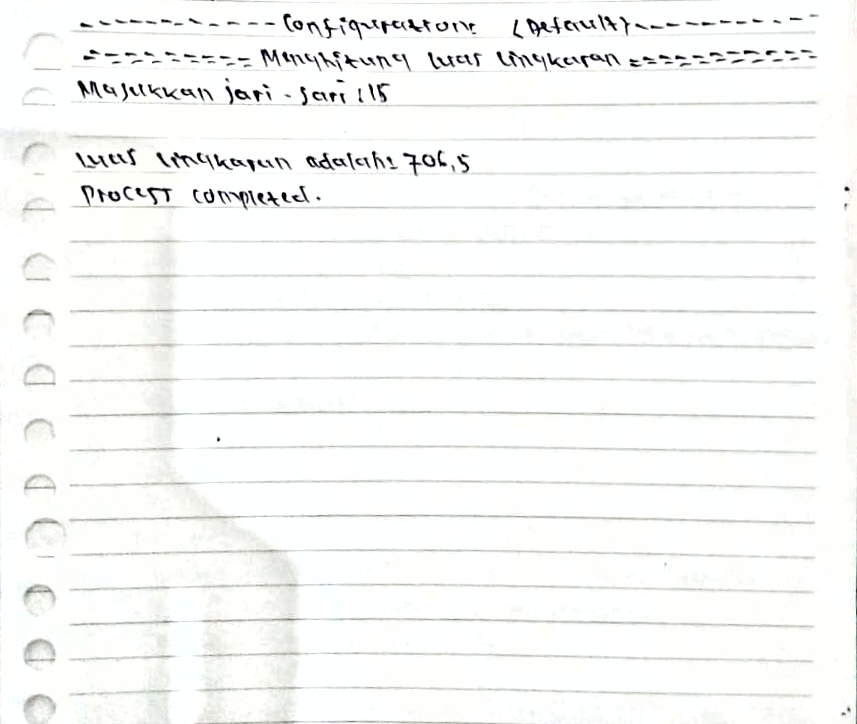 ------------ Configuration: <Default> ------------
========== Menghitung luas lingkaran ===========
Masukkan jari - jari : 15
luas lingkaran adalah: 706,5
Process completed.